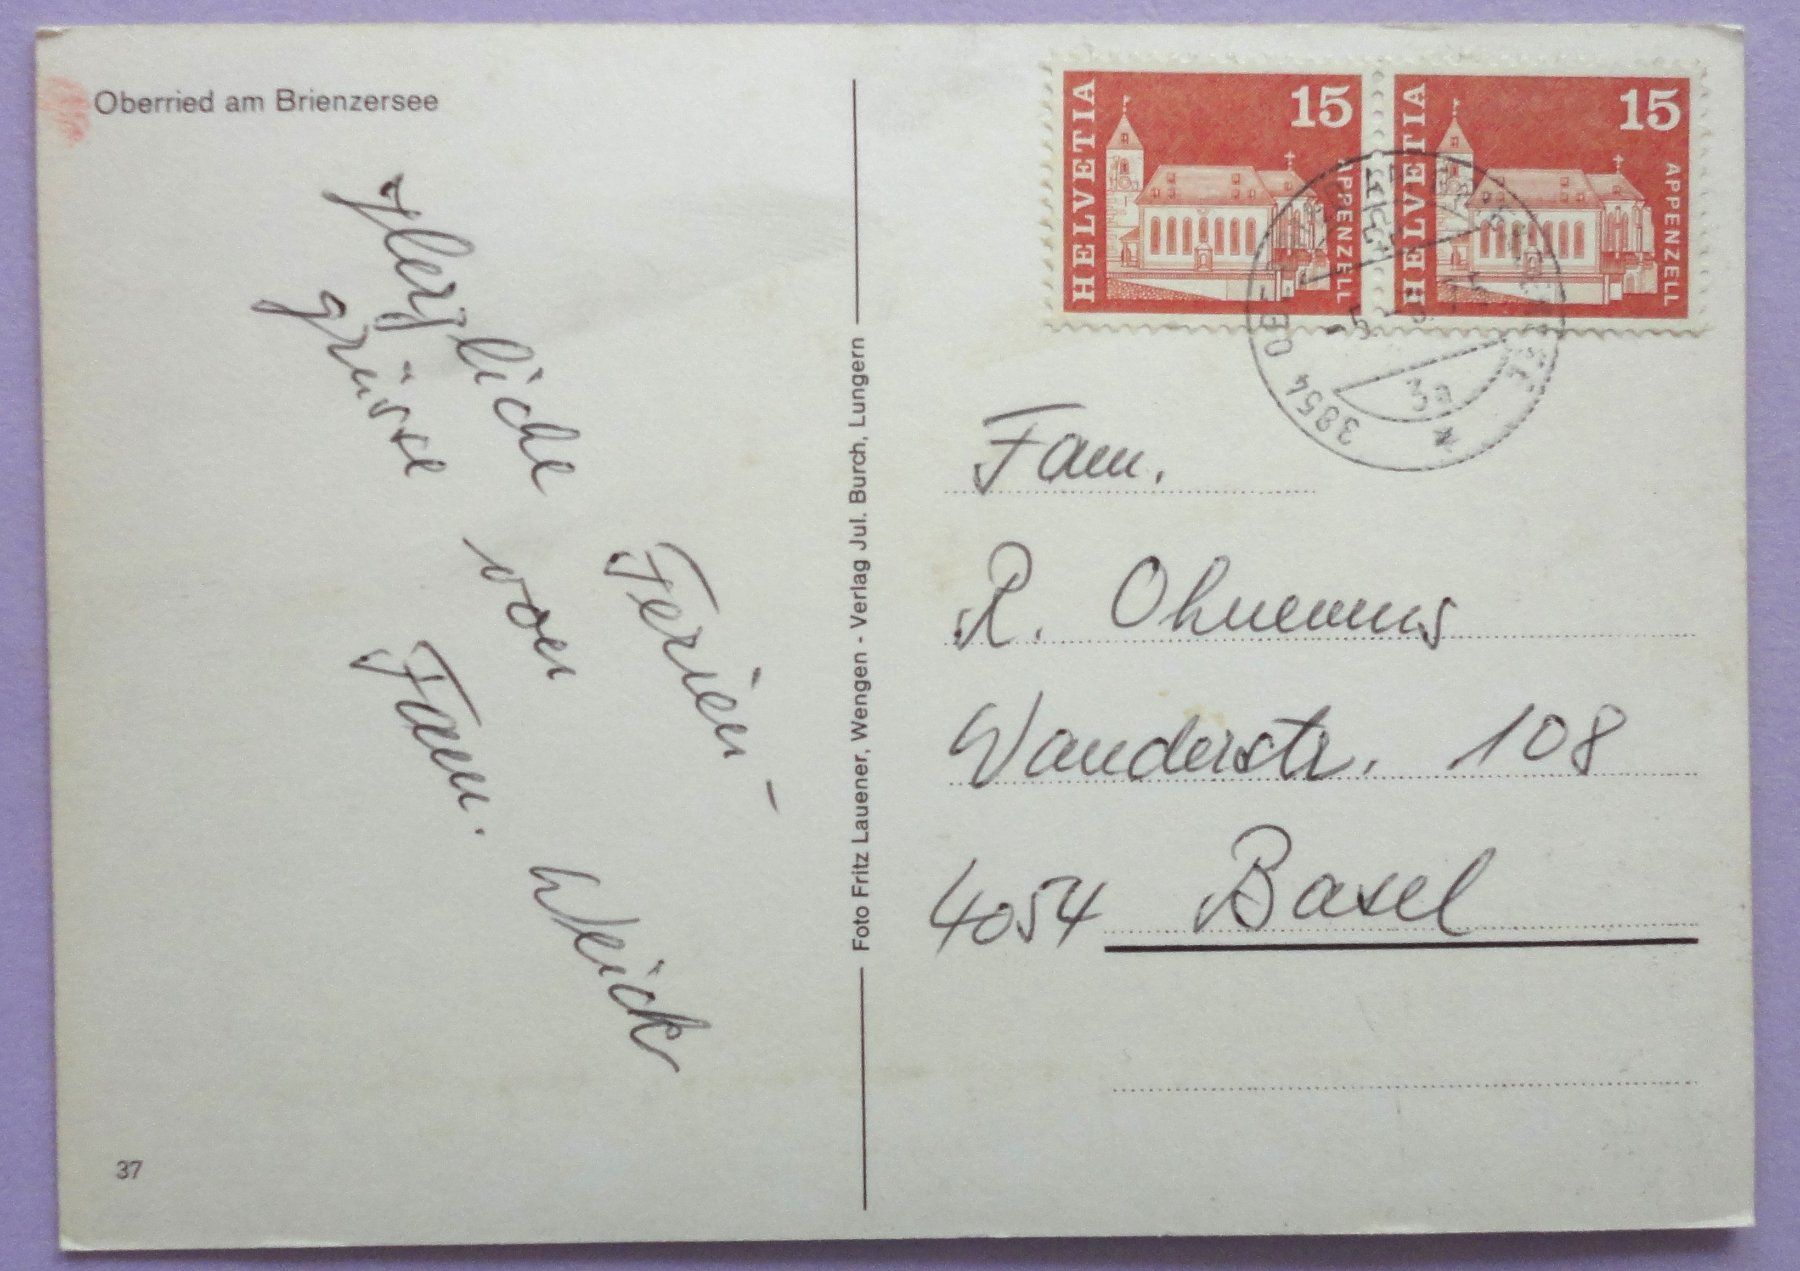 Oberried am Brienzersee
Herzliche Ferien-
grüsse von Fam. Weick
37
Foto Fritz Lauener, Wengen - Verlag Jul. Burch, Lungern
HELVETIA 15 APPENZELL
HELVETIA 15 APPENZELL
3854
-5.
3a
Fam.
R. Ohnemus
Wanderstr. 108
4054 Basel